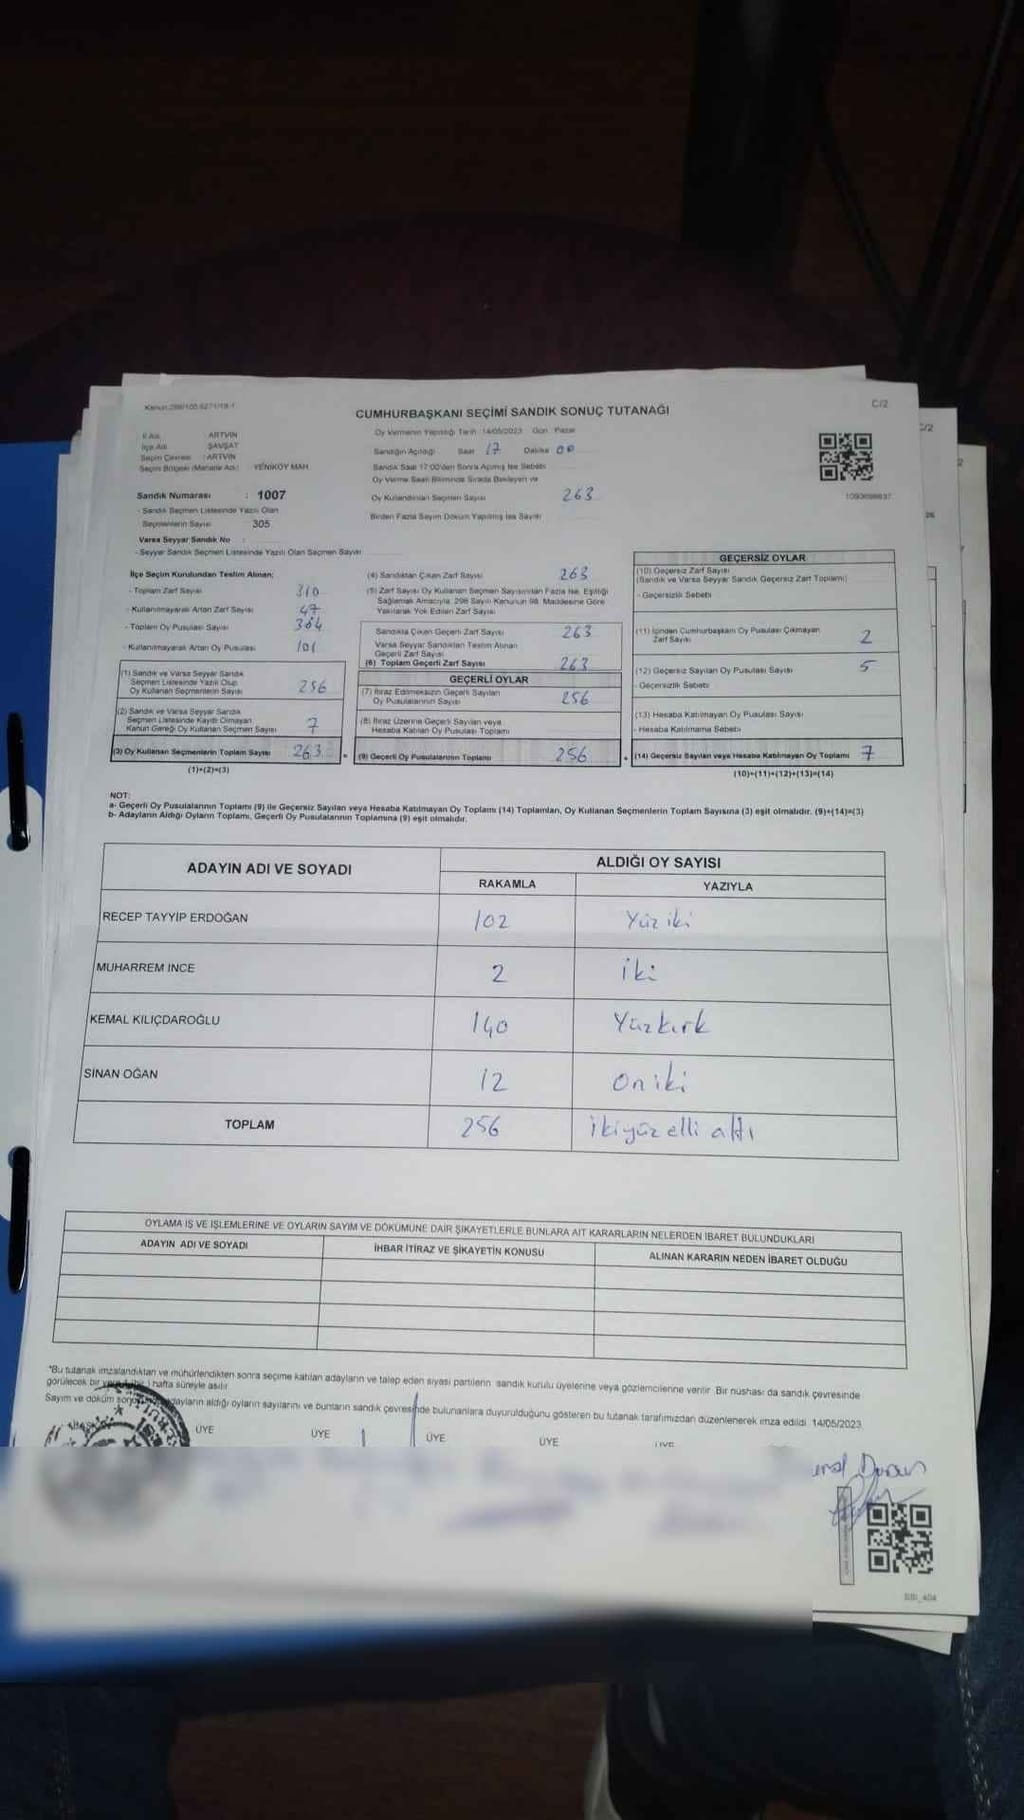 Kanun:298/105 6271/19-1
C/2
CUMHURBAŞKANI SEÇİMİ SANDIK SONUÇ TUTANAĞI
İl Adı ARTVİN
İlçe Adı ŞAVŞAT
Seçim Çevresi : ARTVİN
Seçim Bölgesi (Mahalle Adı) YENİKÖY MAH.
Oy Vermenin Yapıldığı Tarih 14/05/2023 Gün Pazar
Sandığın Açıldığı Saat 17 Dakika 00
Sandık Saat 17:00'den Sonra Açılmış İse Sebebi
Oy Verme Saati Bitiminde Sırada Bekleyen ve
Sandık Numarası : 1007
Oy Kullandırılan Seçmen Sayısı 263
- Sandık Seçmen Listesinde Yazılı Olan
Seçmenlerin Sayısı 305
Birden Fazla Sayım Döküm Yapılmış İse Sayısı
Varsa Seyyar Sandık No :
- Seyyar Sandık Seçmen Listesinde Yazılı Olan Seçmen Sayısı
İlçe Seçim Kurulundan Teslim Alınan;
- Toplam Zarf Sayısı 310
- Kullanılmayarak Artan Zarf Sayısı 47
- Toplam Oy Pusulası Sayısı
- Kullanılmayarak Artan Oy Pusulası 101
(1) Sandık ve Varsa Seyyar Sandık
Seçmen Listesinde Yazılı Olup
Oy Kullanan Seçmenlerin Sayısı 256
(2) Sandık ve Varsa Seyyar Sandık
Seçmen Listesinde Kayıtlı Olmayan
Kanun Gereği Oy Kullanan Seçmen Sayısı 7
(3) Oy Kullanan Seçmenlerin Toplam Sayısı 263
(1)+(2)=(3)
(4) Sandıktan Çıkan Zarf Sayısı 263
(5) Zarf Sayısı Oy Kullanan Seçmen Sayısından Fazla İse, Eşitliği
Sağlamak Amacıyla, 298 Sayılı Kanunun 98. Maddesine Göre
Yakılarak Yok Edilen Zarf Sayısı
Sandıkta Çıkan Geçerli Zarf Sayısı 263
Varsa Seyyar Sandıktan Teslim Alınan
Geçerli Zarf Sayısı
(6) Toplam Geçerli Zarf Sayısı 263
GEÇERLİ OYLAR
(7) İtiraz Edilmeksizin Geçerli Sayılan
Oy Pusulalarının Sayısı 256
(8) İtiraz Üzerine Geçerli Sayılan veya
Hesaba Katılan Oy Pusulası Toplamı
(9) Geçerli Oy Pusulalarının Toplamı 256
GEÇERSİZ OYLAR
(10) Geçersiz Zarf Sayısı
(Sandık ve Varsa Seyyar Sandık Geçersiz Zarf Toplamı)
- Geçersizlik Sebebi
(11) İçinden Cumhurbaşkanı Oy Pusulası Çıkmayan
Zarf Sayısı 2
(12) Geçersiz Sayılan Oy Pusulası Sayısı 5
- Geçersizlik Sebebi
(13) Hesaba Katılmayan Oy Pusulası Sayısı
- Hesaba Katılmama Sebebi
(14) Geçersiz Sayılan veya Hesaba Katılmayan Oy Toplamı 7
(10)+(11)+(12)+(13)=(14)
NOT:
a- Geçerli Oy Pusulalarının Toplamı (9) ile Geçersiz Sayılan veya Hesaba Katılmayan Oy Toplamı (14) Toplamları, Oy Kullanan Seçmenlerin Toplam Sayısına (3) eşit olmalıdır. (9)+(14)=(3)
b- Adayların Aldığı Oyların Toplamı, Geçerli Oy Pusulalarının Toplamına (9) eşit olmalıdır.
ADAYIN ADI VE SOYADI ALDIĞI OY SAYISI
RAKAMLA YAZIYLA
RECEP TAYYİP ERDOĞAN 102 Yüz iki
MUHARREM İNCE 2 iki
KEMAL KILIÇDAROĞLU 140 Yüzkırk
SİNAN OĞAN 12 on iki
TOPLAM 256 ikiyüz elli altı
OYLAMA İŞ VE İŞLEMLERİNE VE OYLARIN SAYIM VE DÖKÜMÜNE DAİR ŞİKAYETLERLE BUNLARA AİT KARARLARIN NELERDEN İBARET BULUNDUKLARI
ADAYIN ADI VE SOYADI İHBAR İTİRAZ VE ŞİKAYETİN KONUSU ALINAN KARARIN NEDEN İBARET OLDUĞU
*Bu tutanak imzalandıktan ve mühürlendikten sonra seçime katılan adayların ve talep eden siyasi partilerin sandık kurulu üyelerine veya gözlemcilerine verilir. Bir nüshası da sandık çevresinde
görülecek bir hafta süreyle asılır
Sayım ve döküm aldığı oyların sayılarını ve bunların sandık çevresinde bulunanlara duyurulduğunu gösteren bu tutanak tarafımızdan düzenlenerek imza edildi. 14/05/2023
ÜYE ÜYE ÜYE ÜYE ÜYE